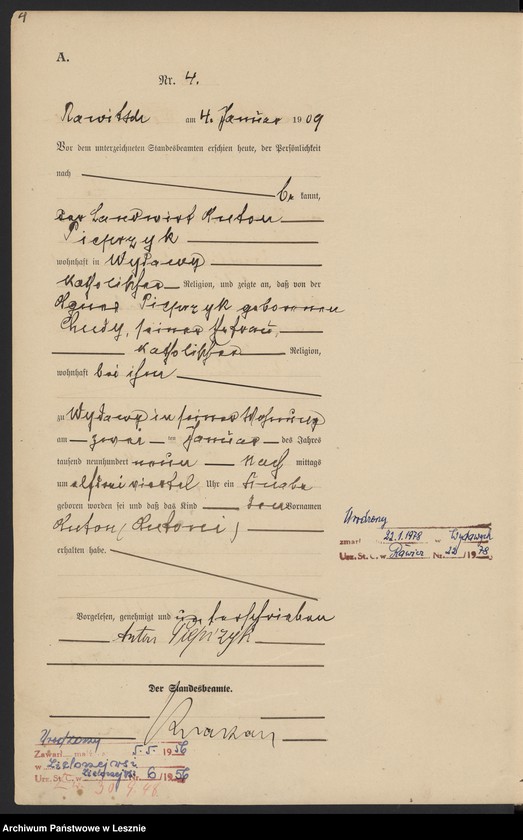 4
A.
Nr. 4.
Rawitsch am 4. Januar 1909
Vor dem unterzeichneten Standesbeamten erschien heute, der Persönlichkeit
nach
be kannt,
der Landwirt Anton
Pieprzyk
wohnhaft in Wydawy
katholischer Religion, und zeigte an, daß von der
Agnes Pieprzyk geborenen
Chudy, seiner Ehefrau,
katholischer Religion,
wohnhaft bei ihm
zu Wydawy in seiner Wohnung
am zwei ten Januar des Jahres
tausend neunhundert neun Nach mittags
um elf drei viertel Uhr ein Knabe
geboren worden sei und daß das Kind den Vornamen
Anton (Antoni)
erhalten habe.
Vorgelesen, genehmigt und unterschrieben
Anton Pieprzyk
Der Standesbeamte.
Urodzony
zmarł 22.1.1978 w Wydawach
Urz. St. C. w Rawicz Nr. 22/1978
Urodzony
Zawarł 5.5. 1956
w Zielonejwsi
Urz. St. C. w Zielonejwsi Nr. 6/1956
Archiwum Państwowe w Lesznie